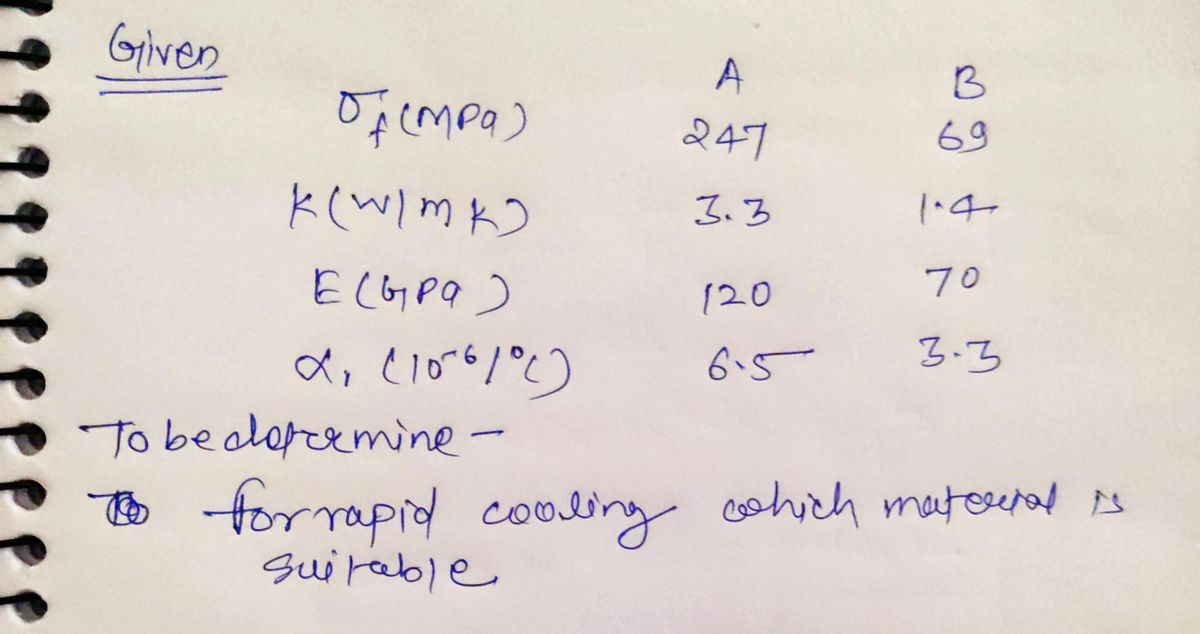 Given
A B
σf (MPa) 247 69
K (W/mK) 3.3 1.4
E (GPa) 120 70
α, (10⁻⁶/°C) 6.5 3.3
To be determine -
for rapid cooling which material is
suitable